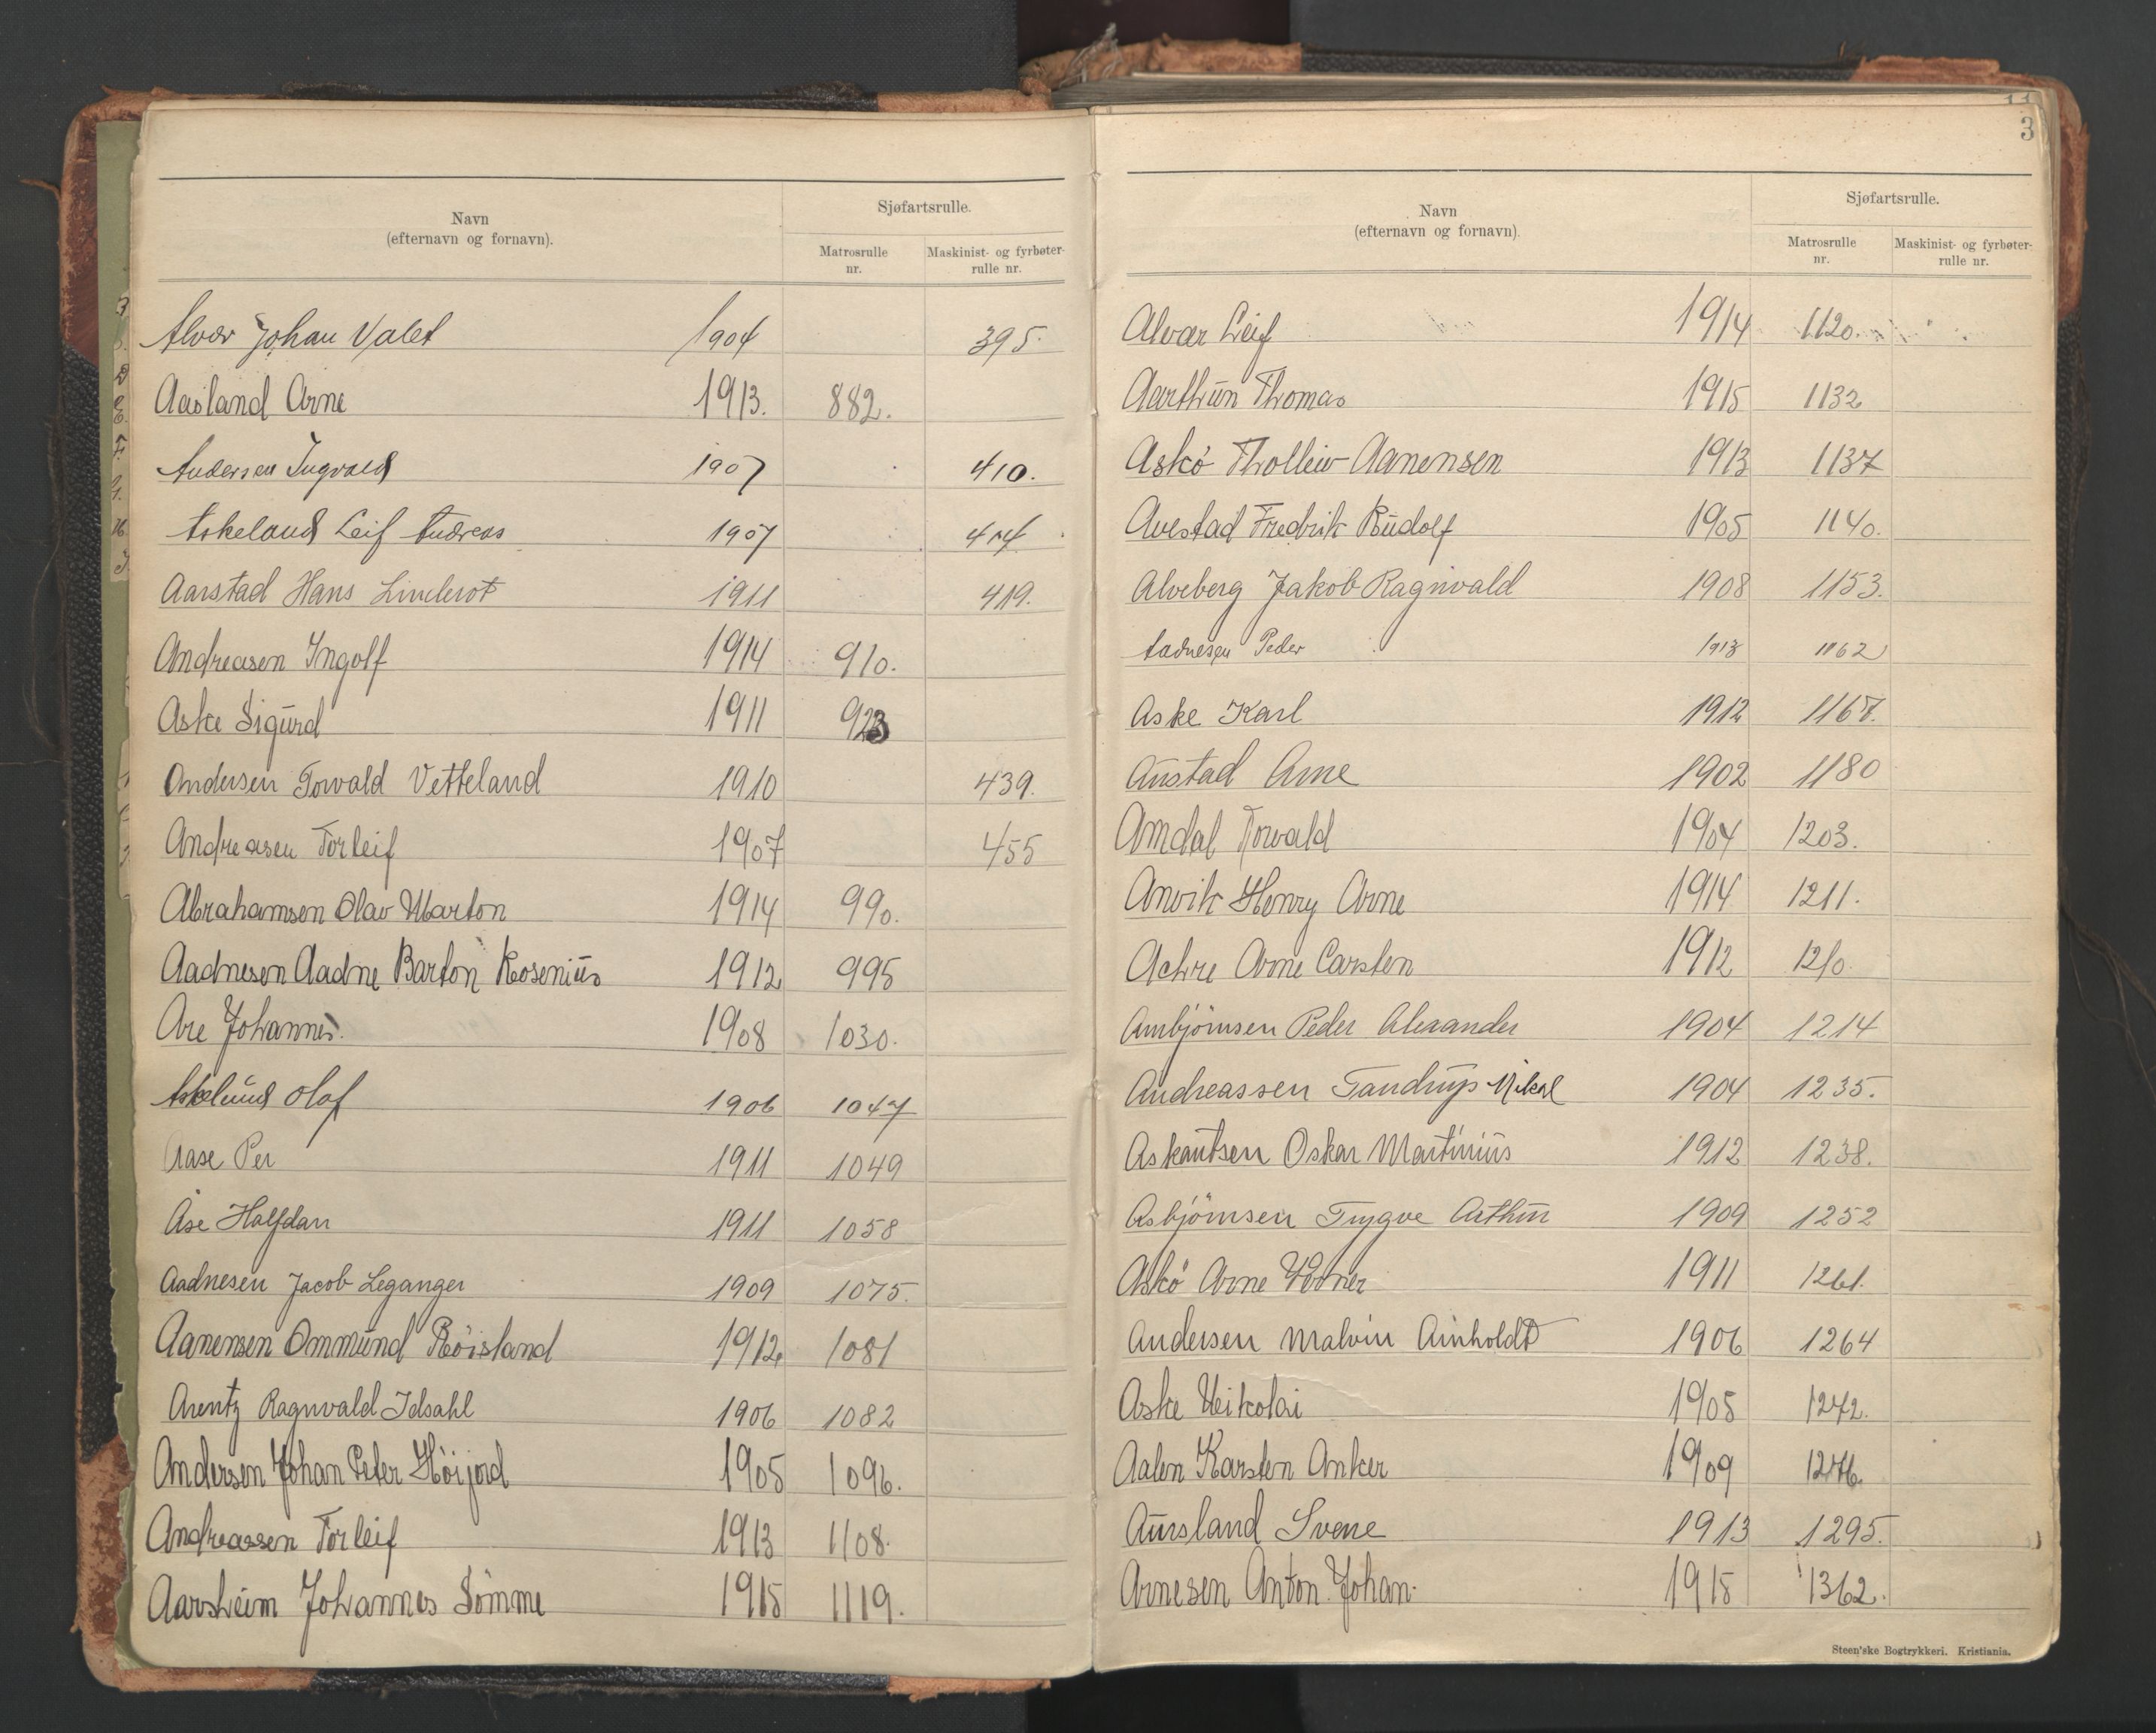 Navn
(efternavn og fornavn).
Sjøfartsrulle.
Matrosrulle nr.
Maskinist- og fyrbøter-rulle nr.
Alvær Johan Valet 1904 395.
Aasland Arne 1913. 882.
Andersen Ingvald 1907 410.
Askeland Leif Andreas 1907 414
Aarstad Hans Linderot 1911 419.
Andreasen Ingolf 1914 910.
Aske Sigurd 1911 923
Andersen Torvald Vetteland 1910 439.
Andreasen Torleif 1907 455
Abrahamsen Olav Marton 1914 990.
Aadnesen Aadne Barton Rosenius 1912 995
Are Johannes. 1908 1030.
Askelund Olaf 1906 1047
Aase Per 1911 1049
Åse Halfdan 1911 1058
Aadnesen Jacob Leganger 1909 1075.
Aanensen Ommund Röisland 1912 1081
Arentz Ragnvald Idsahl 1906 1082
Andersen Johan Peter Höijord 1905 1096.
Andreassen Torleif 1913 1108.
Aarsheim Johannes Sömme 1915 1119.
3
Navn
(efternavn og fornavn).
Sjøfartsrulle.
Matrosrulle nr.
Maskinist- og fyrbøter-rulle nr.
Alvær Leif 1914 1120.
Aarthun Thomas 1915 1132
Askö Thollew Aanensen 1913 1137
Avestad Fredrik Rudolf 1905 1140.
Alveberg Jakob Ragnvald 1908 1153.
Aadnesen Peder 1913 1162
Aske Karl 1912 1167.
Austad Arne 1902 1180
Amdal Torvald 1904 1203.
Anvik Henry Arne 1914 1211.
Achre Arne Carsten 1912 1210.
Arnbjörnsen Peder Alexander 1904 1214
Andreassen Tandrup Mikal 1904 1235.
Askautsen Oskar Martinius 1912 1238.
Asbjörnsen Trygve Arthur 1909 1252
Askö Arne Werner 1911 1261.
Andersen Malvin Ainholdt 1906 1264
Aske Neikolai 1905 1272.
Aalen Karsten Anker 1909 1276.
Aursland Svene 1913 1295.
Arnesen Anton Johan. 1915 1362.
Steen'ske Bogtrykkeri. Kristiania.